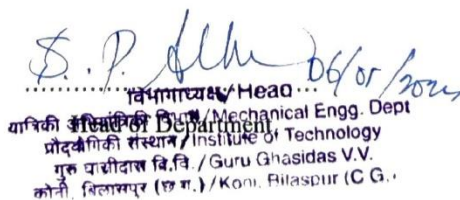 S. P.
विभागाध्यक्ष/Head
यांत्रिकी अभियांत्रिकी विभाग/Mechanical Engg. Dept
Head of Department
प्रौद्यौगिकी संस्थान/Institute of Technology
गुरु घासीदास वि.वि./Guru Ghasidas V.V.
कोनी, बिलासपुर (छ ग.)/Koni, Bilaspur (C G.